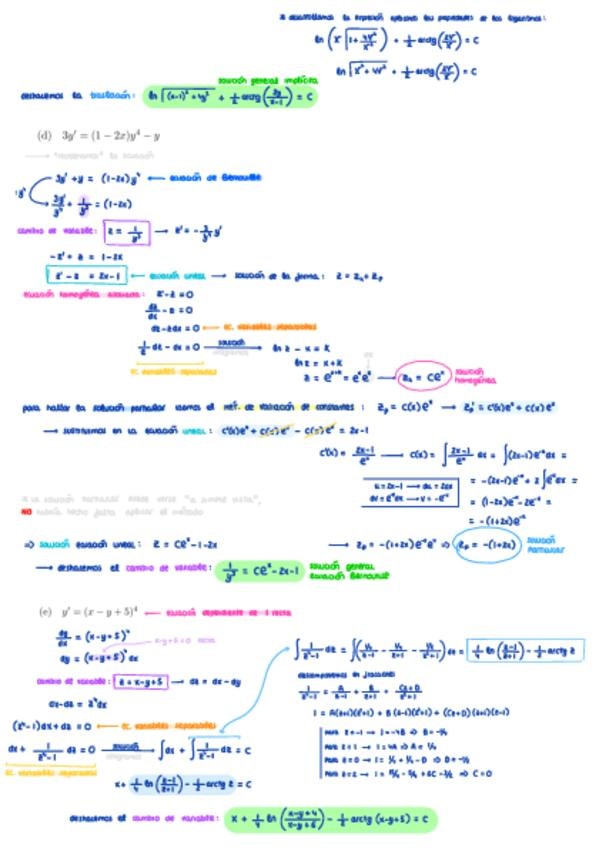 * desarrollamos la expresión aplicando las propiedades de los logaritmos:
ln (x √(1 + 4V²/x²)) + 1/2 arctg(2V/x) = C
ln √(x² + 4V²) + 1/2 arctg(2V/x) = C
solución general implícita
deshacemos la traslación: ln √((x-1)² + 4y²) + 1/2 arctg(2y/(x-1)) = C
(d) 3y' = (1 − 2x)y⁴ − y
"reordenamos" la ecuación
3y' + y = (1-2x)y⁴ ← ecuación de Bernouilli
:y⁴
3y'/y⁴ + 1/y³ = (1-2x)
cambio de variable: z = 1/y³ → z' = -3/y⁴ y'
-z' + z = 1-2x
z' - z = 2x-1 ← ecuación lineal → solución de la forma: z = z_h + z_p
Ecuación homogénea asociada: z' - z = 0
dz/dx - z = 0
dz - zdx = 0 ← ec. variables separables
1/z dz - dx = 0 → solución integramos ln z - x = K
ec. variables separadas
ln z = x+K
z = e^(x+K) = e^x e^K → z_h = Ce^x solución homogénea
para hallar la solución particular usamos el mét. de variación de constantes: z_p = C(x)e^x → z_p' = C'(x)e^x + C(x)e^x
→ sustituimos en la ecuación lineal: C'(x)e^x + C(x)e^x - C(x)e^x = 2x-1
C'(x) = (2x-1)/e^x → C(x) = ∫ (2x-1)/e^x dx = ∫(2x-1)e^-x dx =
u = 2x-1 → du = 2dx
dv = e^-x dx → v = -e^-x
= -(2x-1)e^-x + 2∫e^-x dx =
= (1-2x)e^-x - 2e^-x =
= -(1+2x)e^-x
* la solución particular puede verse "a simple vista",
NO habría hecho falta aplicar el método
→ z_p = -(1+2x)e^-x e^x ⇒ z_p = -(1+2x) solución particular
⇒ solución ecuación lineal: z = Ce^x - 1 - 2x
→ deshacemos el cambio de variable: 1/y³ = Ce^x - 2x - 1 solución general ecuación Bernouilli
(e) y' = (x − y + 5)⁴ ← ecuación dependiente de 1 recta
dy/dx = (x-y+5)⁴
x-y+5=0 recta
dy = (x-y+5)⁴ dx
cambio de variable: z = x-y+5 → dz = dx - dy
dx - dz = z⁴dx
(z⁴-1)dx + dz = 0 ← ec. variables separables
dx + 1/(z⁴-1) dz = 0 → solución integramos ∫dx + ∫ 1/(z⁴-1) dz = C
ec. variables separadas
x + 1/4 ln((z-1)/(z+1)) - 1/2 arctg z = C
∫ 1/(z⁴-1) dz = ∫(1/4/(z-1) - 1/4/(z+1) - 1/2/(z²+1)) dz = 1/4 ln((z-1)/(z+1)) - 1/2 arctg z
descomponemos en fracciones
1/(z⁴-1) = A/(z-1) + B/(z+1) + (Cz+D)/(z²+1)
1 = A(z+1)(z²+1) + B(z-1)(z²+1) + (Cz+D)(z+1)(z-1)
para z = -1 → 1 = -4B ⇒ B = -1/4
para z = 1 → 1 = 4A ⇒ A = 1/4
para z = 0 → 1 = 1/4 + 1/4 - D ⇒ D = -1/2
para z = 2 → 1 = 15/4 - 5/4 + 6C - 3/2 ⇒ C = 0
deshacemos el cambio de variable: x + 1/4 ln((x-y+4)/(x-y+6)) - 1/2 arctg (x-y+5) = C